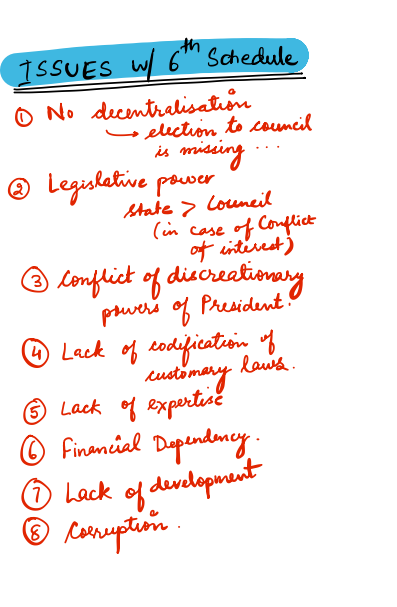 ISSUES w/ 6th Schedule
① No decentralisation
→ election to council
is missing ...
② Legislative power
State > Council
(in case of Conflict
of interest)
③ Conflict of discreationary
powers of President.
④ Lack of codification of
customary laws.
⑤ Lack of expertise
⑥ Financial Dependency.
⑦ Lack of development
⑧ Corruption.